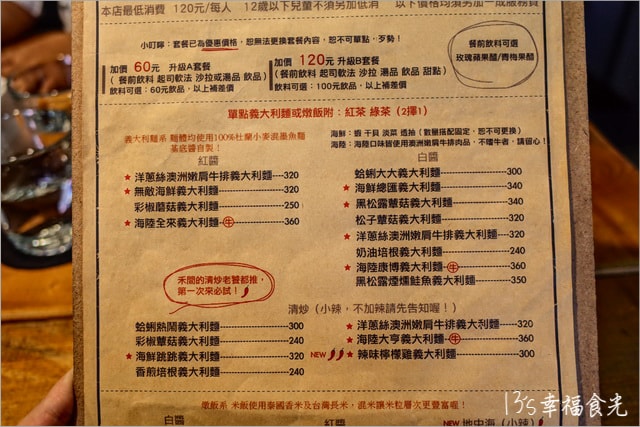 本店最低消費 120元/每人 12歲以下兒童不須另加低消 以下價格均須另加一成服務費
小叮嚀：套餐已為優惠價格，恕無法更換套餐內容，恕不可單點，歹勢！
加價 60元 升級A套餐
（餐前飲料 起司軟法 沙拉或湯品 飲品）
飲料可選：60元飲品，以上補差價
加價 120元 升級B套餐
（餐前飲料 起司軟法 沙拉 湯品 飲品 甜點）
飲料可選：100元飲品，以上補差價
餐前飲料可選
玫瑰蘋果醋/青梅果醋
單點義大利麵或燉飯附：紅茶 綠茶（2擇1）
義大利麵系 麵體均使用100%杜蘭小麥混墨魚麵
基底醬自製！
海鮮：蝦 干貝 淡菜 透抽（數量搭配固定，恕不可更換）
海陸：海陸口味皆使用澳洲嫩肩牛排肉品，不嗜牛者，請留心！
紅醬
★洋蔥絲澳洲嫩肩牛排義大利麵---320
★無敵海鮮義大利麵---320
彩椒蘑菇義大利麵---250
★海陸全來義大利麵---牛---360
白醬
蛤蜊大大義大利麵---300
★海鮮總匯義大利麵---340
★黑松露蕈菇義大利麵---340
松子蕈菇義大利麵---320
★洋蔥絲澳洲嫩肩牛排義大利麵---320
奶油培根義大利麵---240
★海陸康博義大利麵---牛---360
黑松露煙燻鮭魚義大利麵---350
禾間的清炒老饕都推，
第一次來必試！
清炒（小辣，不加辣請先告知喔！）
蛤蜊熱鬧義大利麵---300
彩椒蕈菇義大利麵---240
★海鮮跳跳義大利麵---320
香煎培根義大利麵---240
★洋蔥絲澳洲嫩肩牛排義大利麵---320
★海陸大亨義大利麵---牛---360
NEW 辣味檸檬雞義大利麵---300
燉飯系 米飯使用泰國香米及台灣長米，混米讓米粒層次更豐富喔！
白醬
紅醬
NEW 地中海（小辣）
13's幸福食光